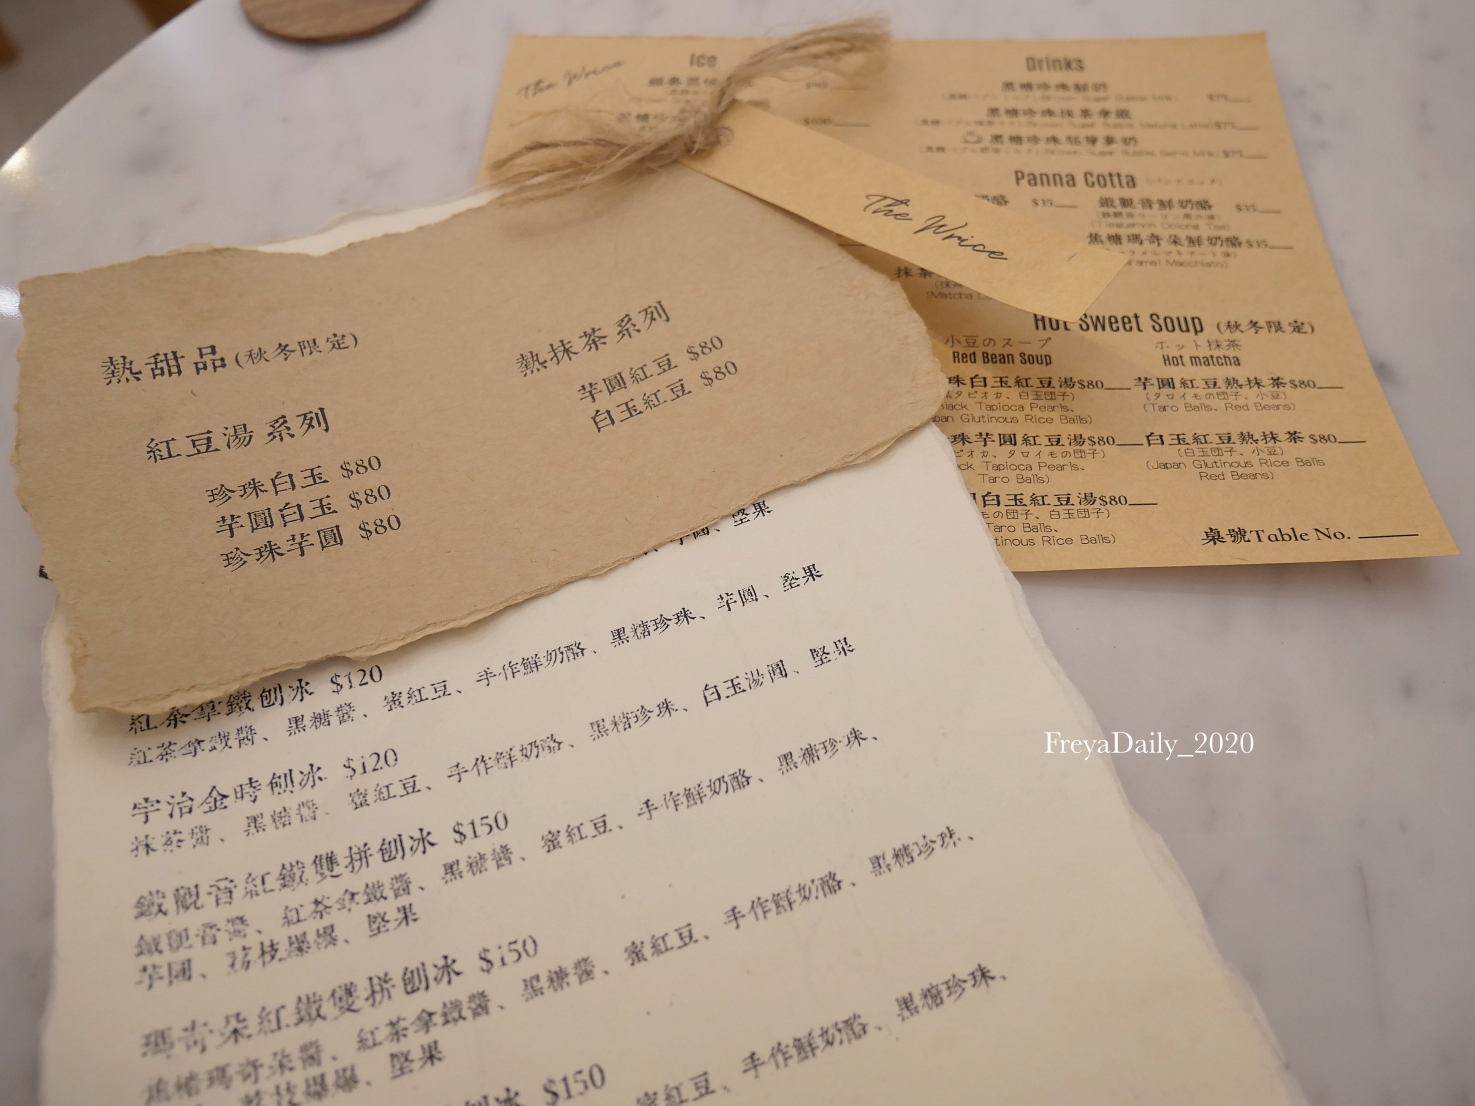 The Wrice
Ice
$100
Drinks
黑糖珍珠鮮奶
黑糖珍珠抹茶拿鐵
黑糖珍珠胚芽麥奶
Panna Cotta
奶酪 $35
鐵觀音鮮奶酪 $35
(Tieguanyin Oolong Tea)
焦糖瑪奇朵鮮奶酪$35
抹茶
(Matcha
Hot Sweet Soup (秋冬限定)
小豆のスープ
Red Bean Soup
ホット抹茶
Hot matcha
珠白玉紅豆湯$80
タピオカ、白玉団子)
lack Tapioca Pearls、
pan Glutinous Rice Balls)
芋圓紅豆熱抹茶$80
(タロイモの団子、小豆)
(Taro Balls、Red Beans)
珠芋圓紅豆湯$80
ピオカ、タロイモの団子)
ck Tapioca Pearls、
Taro Balls)
白玉紅豆熱抹茶 $80
(白玉団子、小豆)
(Japan Glutinous Rice Balls
Red Beans)
白玉紅豆湯$80
モの団子、白玉団子)
Taro Balls、
tinous Rice Balls)
桌號Table No.
The Wrice
熱甜品(秋冬限定)
紅豆湯 系列
珍珠白玉 $80
芋圓白玉 $80
珍珠芋圓 $80
熱抹茶 系列
芋圓紅豆 $80
白玉紅豆 $80
芋圓、堅果
紅茶拿鐵刨冰 $120
紅茶拿鐵醬、黑糖醬、蜜紅豆、手作鮮奶酪、黑糖珍珠、芋圓、堅果
宇治金時刨冰 $120
抹茶醬、黑糖醬、蜜紅豆、手作鮮奶酪、黑糖珍珠、白玉湯圓、堅果
鐵觀音紅鐵雙拼刨冰 $150
鐵觀音醬、紅茶拿鐵醬、黑糖醬、蜜紅豆、手作鮮奶酪、黑糖珍珠、
芋圓、荔枝爆爆、堅果
瑪奇朵紅鐵雙拼刨冰 $150
焦糖瑪奇朵醬、紅茶拿鐵醬、黑糖醬、蜜紅豆、手作鮮奶酪、黑糖珍珠、
荔枝爆爆、堅果
刨冰 $150
蜜紅豆、手作鮮奶酪、黑糖珍珠、
FreyaDaily_2020